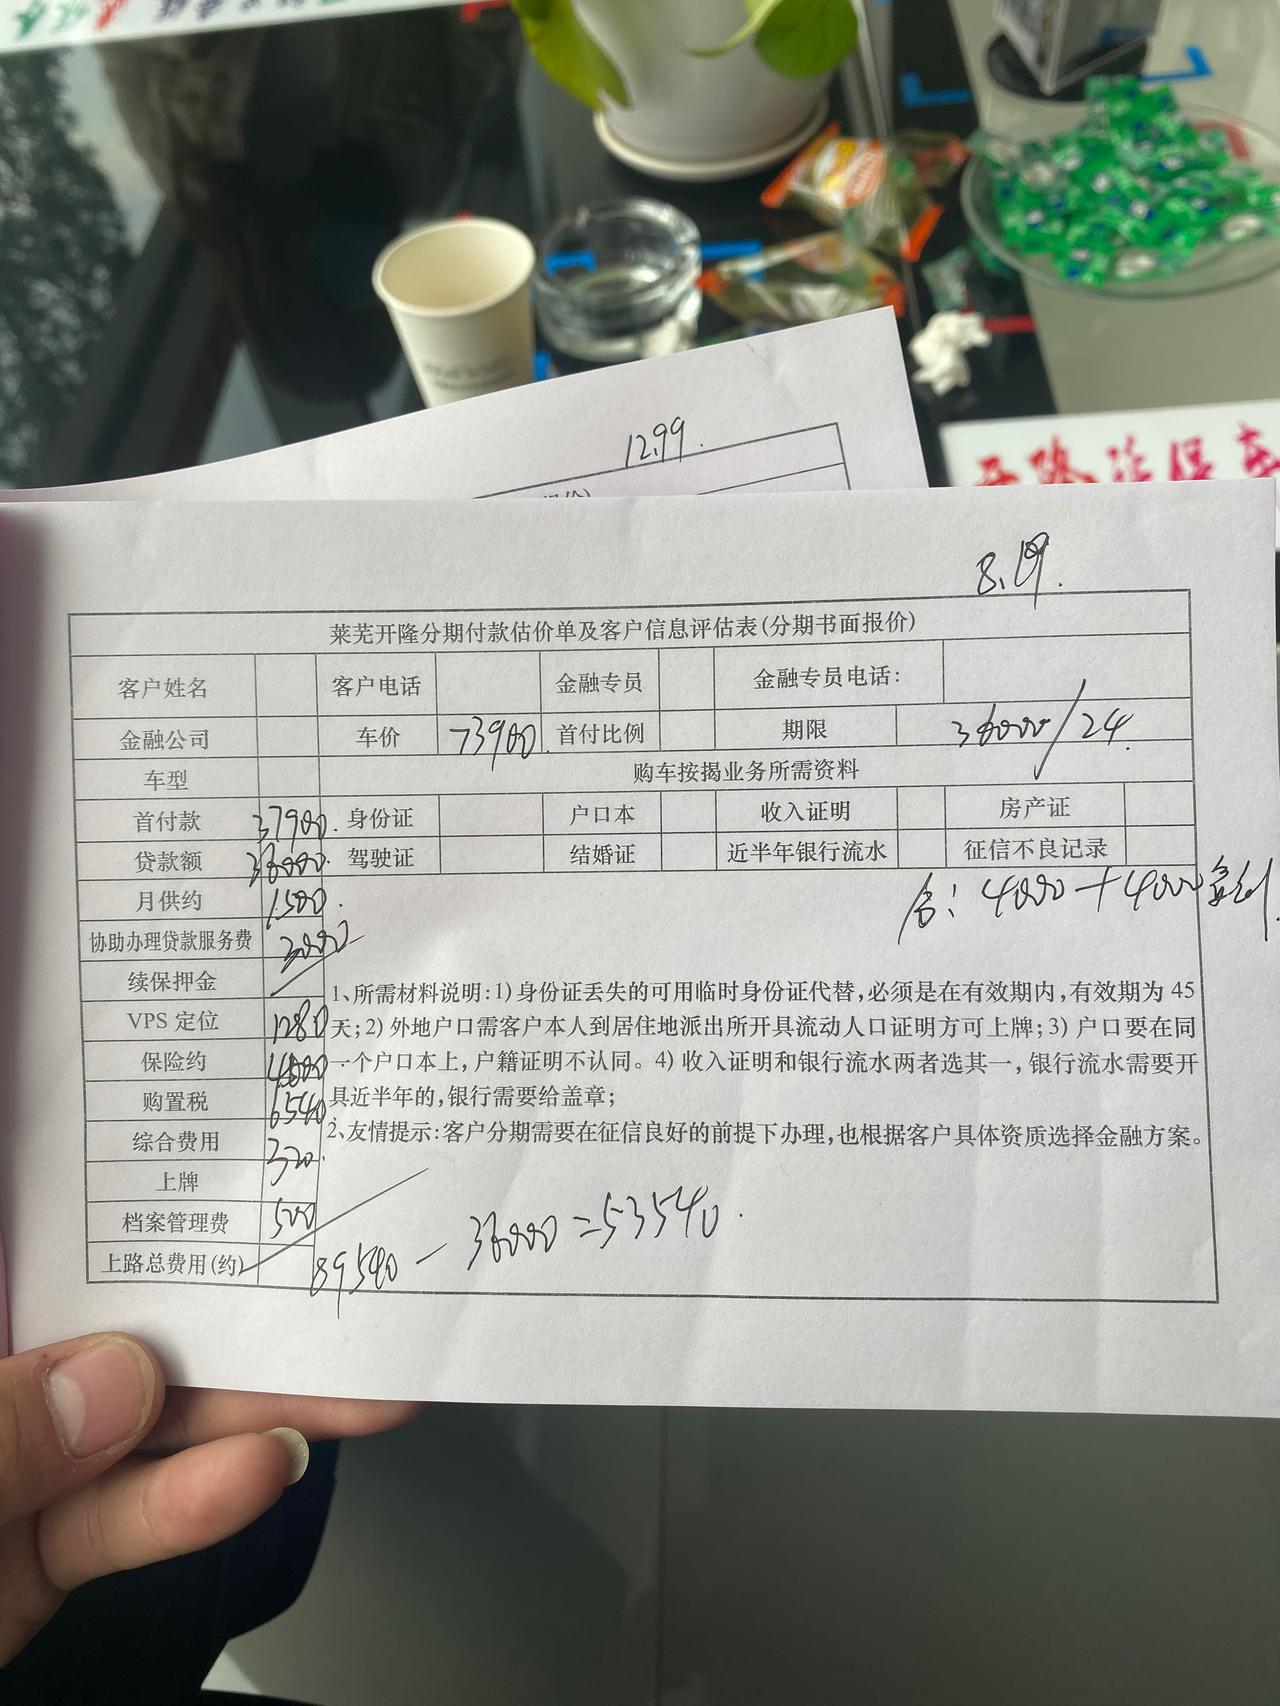 12.99.
8.19.
莱芜开隆分期付款估价单及客户信息评估表(分期书面报价)
客户姓名 客户电话 金融专员 金融专员电话:
金融公司 车价 73900. 首付比例 期限 36000/24.
车型 购车按揭业务所需资料
首付款 37900. 身份证 户口本 收入证明 房产证
贷款额 36000. 驾驶证 结婚证 近半年银行流水 征信不良记录
月供约 1500. 含: 4000+4000
协助办理贷款服务费 3000
续保押金
VPS 定位 1280
保险约 4000
购置税 6540
综合费用 320.
上牌
档案管理费 500
上路总费用(约) 89540-36000=53540.
1、所需材料说明:1)身份证丢失的可用临时身份证代替,必须是在有效期内,有效期为 45
天;2)外地户口需客户本人到居住地派出所开具流动人口证明方可上牌;3)户口要在同
一个户口本上,户籍证明不认同。4)收入证明和银行流水两者选其一,银行流水需要开
具近半年的,银行需要给盖章;
2、友情提示:客户分期需要在征信良好的前提下办理,也根据客户具体资质选择金融方案。